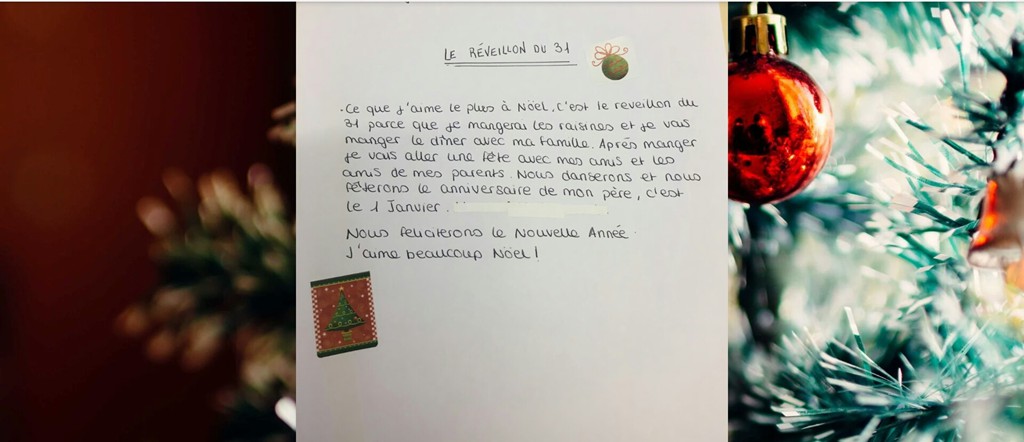 LE RÉVEILLON DU 31
. Ce que j'aime le plus à Nöel, c'est le reveillon du
31 parce que je mangerai les raisines et je vais
manger le dîner avec ma famille. Aprés manger
je vais aller une fête avec mes amis et les
amis de mes parents. Nous danserons et nous
fêterons le anniversaire de mon père, c'est
le 1 Janvier.
Nous feliciterons le Nouvelle Année.
J'aime beaucoup Nöel!